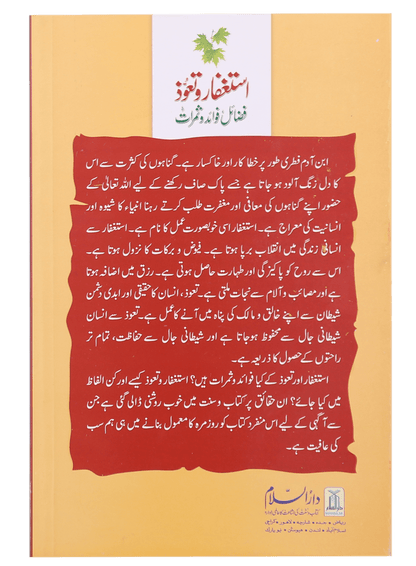 استغفار و تعوّذ
فضائل فوائد و ثمرات
ابن آدم فطری طور پر خطا کار اور خاکسار ہے۔ گناہوں کی کثرت سے اس
کا دل زنگ آلود ہو جاتا ہے جسے پاک صاف رکھنے کے لیے اللہ تعالیٰ کے
حضور اپنے گناہوں کی معافی اور مغفرت طلب کرتے رہنا انبیاء کا شیوہ اور
انسانیت کی معراج ہے۔ استغفار اسی خوبصورت عمل کا نام ہے۔ استغفار سے
انسانی زندگی میں انقلاب برپا ہوتا ہے۔ فیوض و برکات کا نزول ہوتا ہے۔
اس سے روح کو پاکیزگی اور طہارت حاصل ہوتی ہے۔ رزق میں اضافہ ہوتا
ہے اور مصائب و آلام سے نجات ملتی ہے۔ تعوذ، انسان کا حقیقی اور ابدی دشمن
شیطان سے اپنے خالق و مالک کی پناہ میں آنے کا عمل ہے۔ تعوذ سے انسان
شیطانی جال سے محفوظ ہو جاتا ہے اور شیطانی جال سے حفاظت، تمام تر
راحتوں کے حصول کا ذریعہ ہے۔
استغفار اور تعوذ کے کیا فوائد و ثمرات ہیں؟ استغفار و تعوذ کیسے اور کن الفاظ
میں کیا جائے؟ ان حقائق پر کتاب و سنت میں خوب روشنی ڈالی گئی ہے جن
سے آگہی کے لیے اس منفرد کتاب کو روز مرہ کا معمول بنانے میں ہی ہم سب
کی عافیت ہے۔
دارالسلام
کتاب و سنت کی اشاعت کا عالمی ادارہ
ریاض • جدہ • شارجہ • لاہور • کراچی
اسلام آباد • لندن • ہیوسٹن • نیو یارک